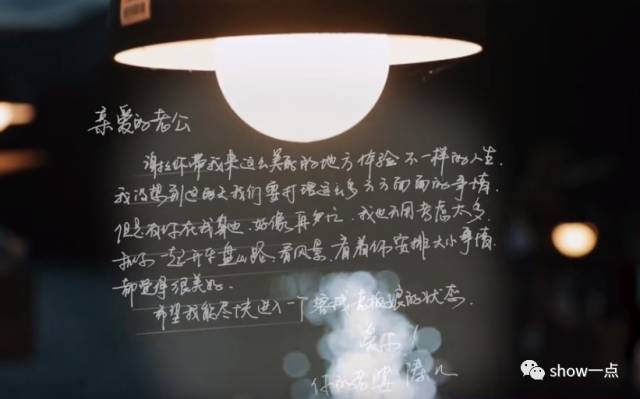 亲爱的老公
谢谢你带我来这么美丽的地方体验不一样的人生.
我没想到这两天我们要打理这么多方方面面的事情.
但是有你在我身边,好像再多,我也不用考虑太多.
和你一起开车盘山路.看风景.看着你安排大小事情.
都觉得很美好.
希望我能尽快进入一下客栈老板娘的状态.
爱你!
你的老婆
show一点